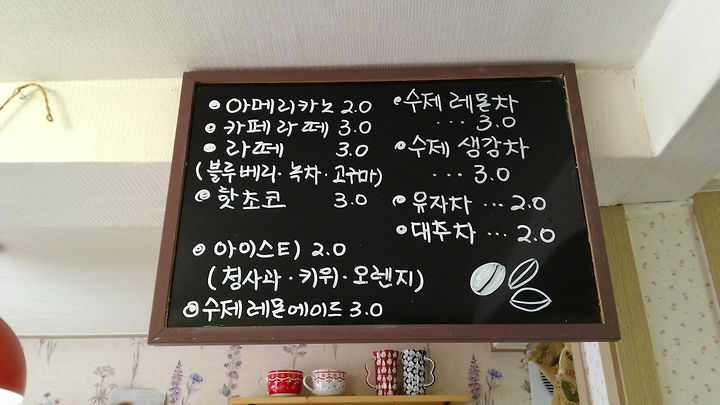 아메리카노 2.0
카페라떼 3.0
라떼 3.0
(블루베리·녹차·고구마)
핫초코 3.0
아이스티 2.0
(청사과·키위·오렌지)
수제레몬에이드 3.0
수제 레몬차
... 3.0
수제 생강차
... 3.0
유자차 ... 2.0
대추차 ... 2.0